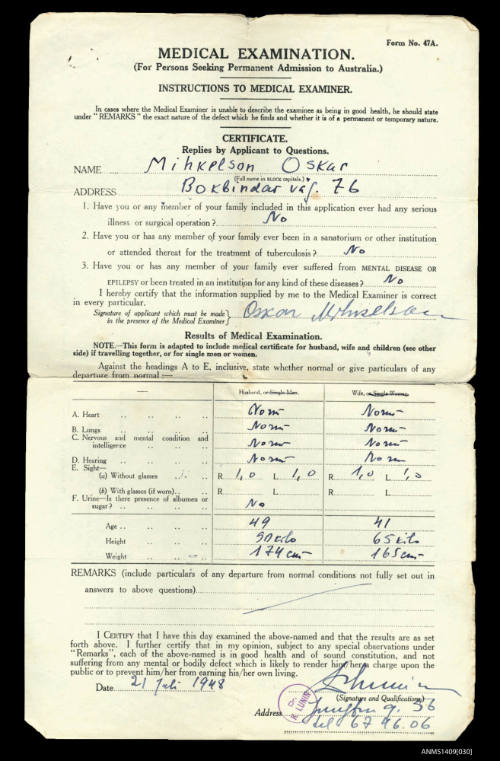 Form No. 47A.
MEDICAL EXAMINATION.
(For Persons Seeking Permanent Admission to Australia.)
INSTRUCTIONS TO MEDICAL EXAMINER.
In cases where the Medical Examiner is unable to describe the examinee as being in good health, he should state
under "REMARKS" the exact nature of the defect which he finds and whether it is of a permanent or temporary nature.
CERTIFICATE.
Replies by Applicant to Questions.
NAME Mihkelson Oskar
(Full name in BLOCK capitals.)
ADDRESS Bokbindar väg. 76
1. Have you or any member of your family included in this application ever had any serious
illness or surgical operation? No
2. Have you or has any member of your family ever been in a sanatorium or other institution
or attended thereat for the treatment of tuberculosis? No
3. Have you or has any member of your family ever suffered from MENTAL DISEASE OR
EPILEPSY or been treated in an institution for any kind of these diseases? No
I hereby certify that the information supplied by me to the Medical Examiner is correct
in every particular.
Signature of applicant which must be made
in the presence of the Medical Examiner} Oskar Mihkelson
Results of Medical Examination.
NOTE.—This form is adapted to include medical certificate for husband, wife and children (see other
side) if travelling together, or for single men or women.
Against the headings A to E, inclusive, state whether normal or give particulars of any
departure from normal:—
— Husband, or Single Man. Wife, or Single Woman.
A. Heart .. .. .. .. Norm Norm
B. Lungs .. .. .. .. Norm Norm
C. Nervous and mental condition and
intelligence .. .. .. Norm Norm
D. Hearing .. .. .. .. Norm Norm
E. Sight—
(a) Without glasses .. .. R. 1,0 L. 1,0 R. 1,0 L. 1,0
(b) With glasses (if worn).. .. R. L. R. L.
F. Urine—Is there presence of albumen or
sugar? .. .. .. .. No
Age .. .. .. .. 49 41
Height .. .. .. 90 kilo 65 kilo
Weight .. .. .. 174 cm 165 cm
REMARKS (include particulars of any departure from normal conditions not fully set out in
answers to above questions)
I CERTIFY that I have this day examined the above-named and that the results are as set
forth above. I further certify that in my opinion, subject to any special observations under
"Remarks", each of the above-named is in good health and of sound constitution, and not
suffering from any mental or bodily defect which is likely to render him/her a charge upon the
public or to prevent him/her from earning his/her own living.
Date 21 Juli 1948
(Signature and Qualifications)
Address
tel 67 46 06
ANMS1409[030]